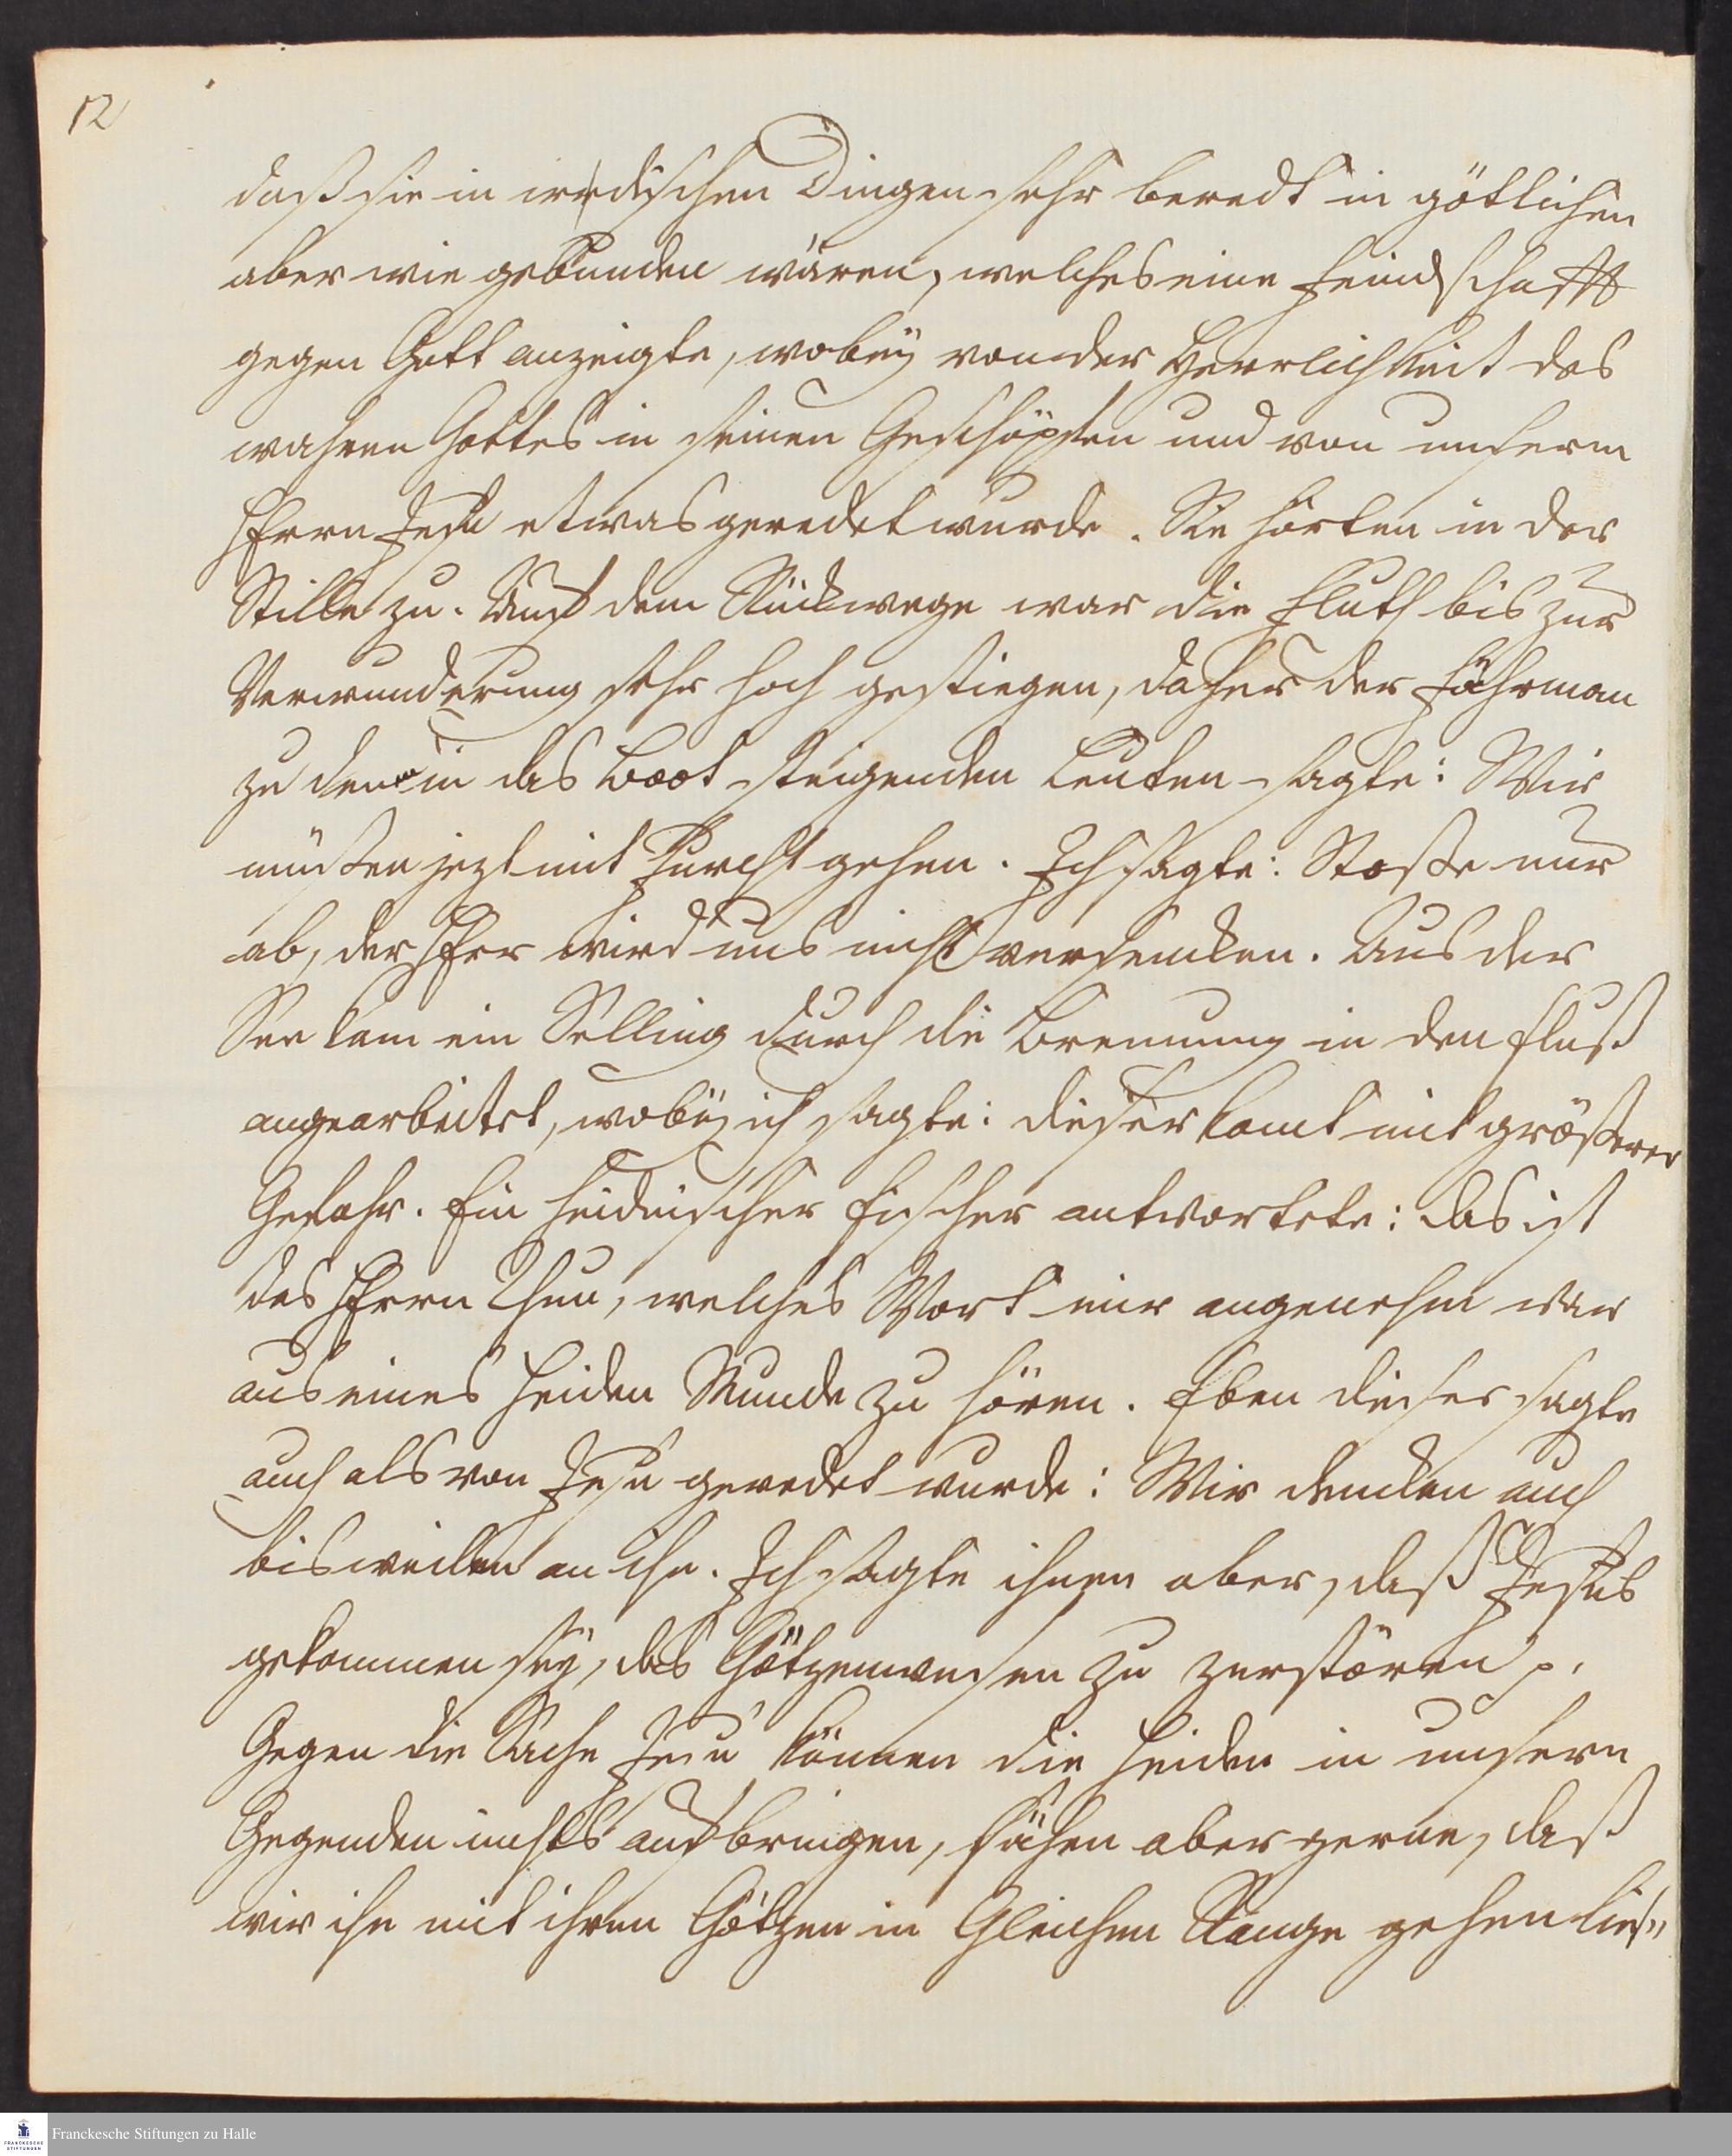 12
daß sie in irrdischen Dingen sehr beredt in götlichen
aber wie gebunden wären, welches eine Feindschafft
gegen Gott anzeigte, wobeÿ von der Herrlichkeit des
wahren Gottes in seinen Geschöpfen und von unserm
HErrn Jesu etwas geredet wurde. Sie hörten in der
Stille zu. Auf dem Rückwege war die Fluth bis zur
Verwunderung sehr hoch gestiegen, daher der Fährman
zu den in das Boot steigenden Leuten sagte: Wir
müßen jezt mit Furcht gehen. Ich sagte: Stoße nur
ab, der HErr wird uns nicht versencken. Aus der
See kam ein Selling durch die Brennung in den Fluß
angearbeitet, wobeÿ ich sagte: dieser komt mit größerer
Gefahr. Ein heidnischer Fischer antwortete: das ist
des HErrn Thun, welches Wort mir angenehm war
aus eines Heiden Munde zu hören. Eben dieser sagte
auch als von Jesu geredet wurde: Wir dencken auch
bisweilen an ihn. Ich sagte ihnen aber, daß Jesus
gekommen seÿ, das Götzenwesen zu zerstören p.
Gegen die Sache Jesu können die Heiden in unsern
Gegenden nichts aufbringen, sähen aber gerne, daß
wir ihn mit ihren Götzen in Gleichen Range gehen ließ"
Franckesche Stiftungen zu Halle
FRANCKESCHE
STIFTUNGEN